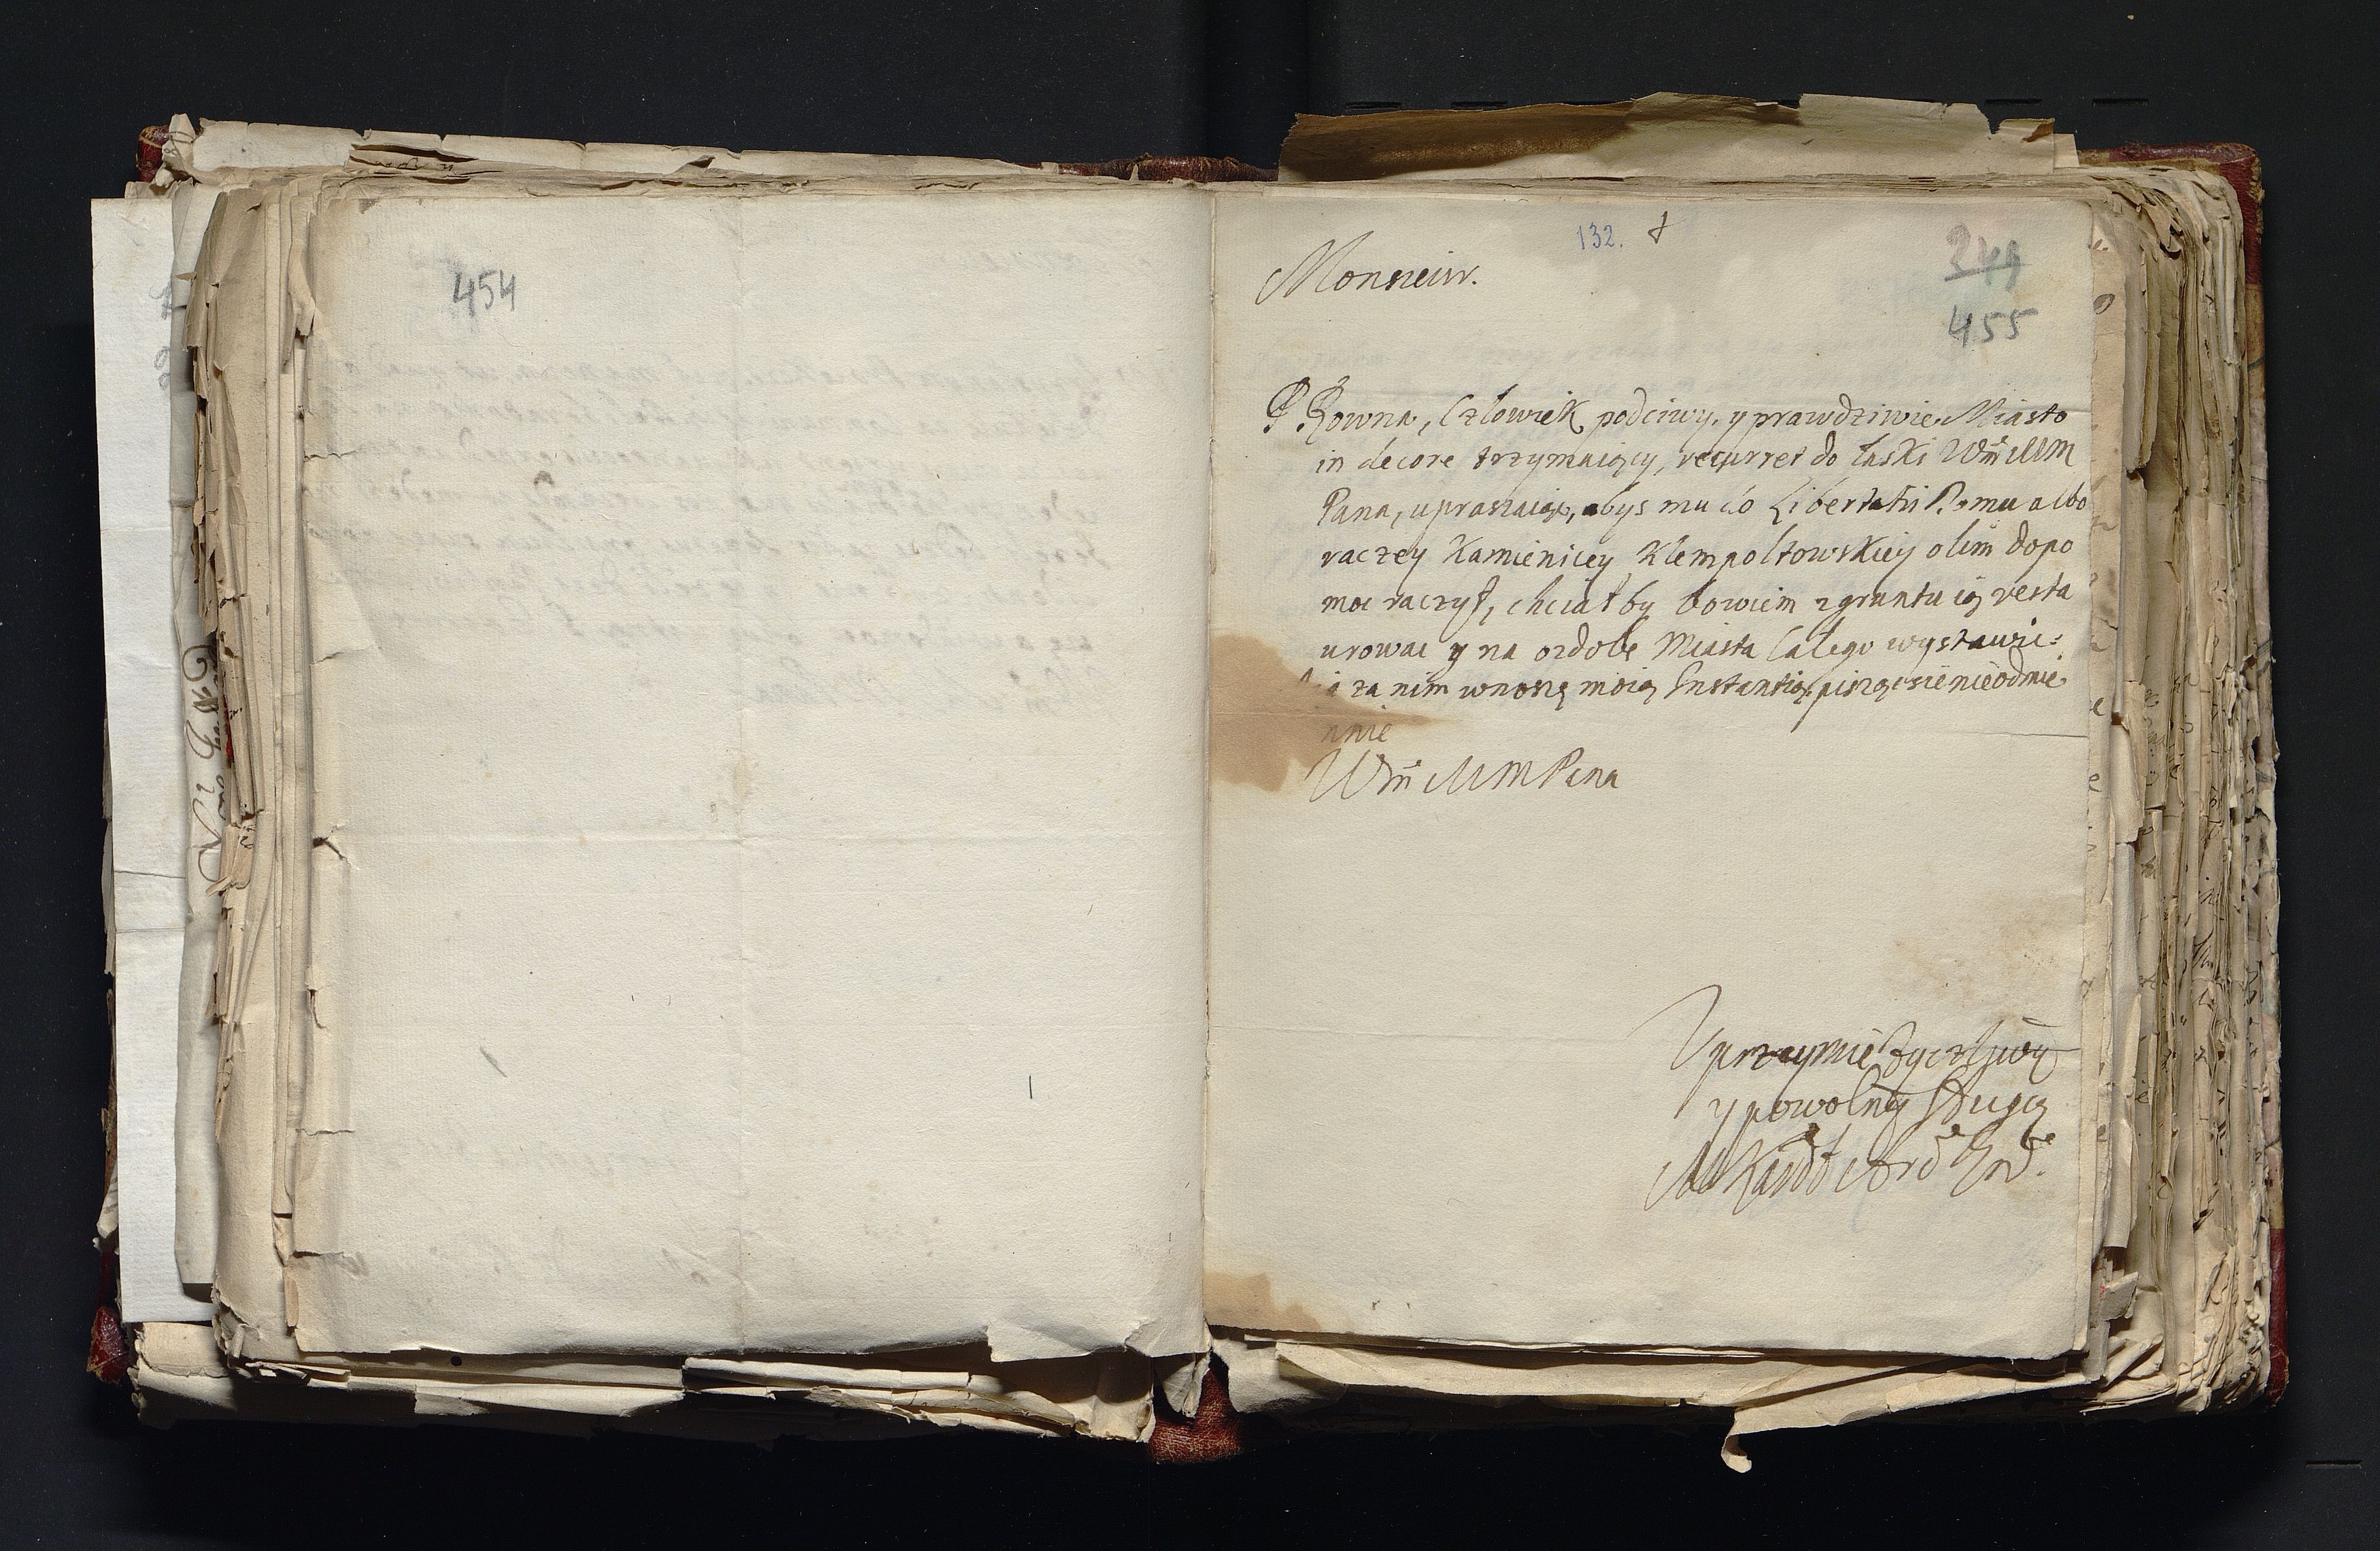 454
132. †
Monsieur.
249
455
P Rowna, Człowiek podciwy, y prawdziwie Miasto
in decore trzymaiący, recurret do łaski Wm̃ MM
Pana, upraszaiąc, abys mu do Libertatii Domu albo
raczey Kamienicey Klempoltowskiey olim dopo
moc raczył, chciał by bowiem z gruntu ią resta
urowac y na ozdobę Miasta Całego wystawic:
ia za nim wnoszę moię Instantią, piszę się nieodmie
nnie
Wm̃ MM Pana
Uprzeymie życzliwy
y powolny sługa